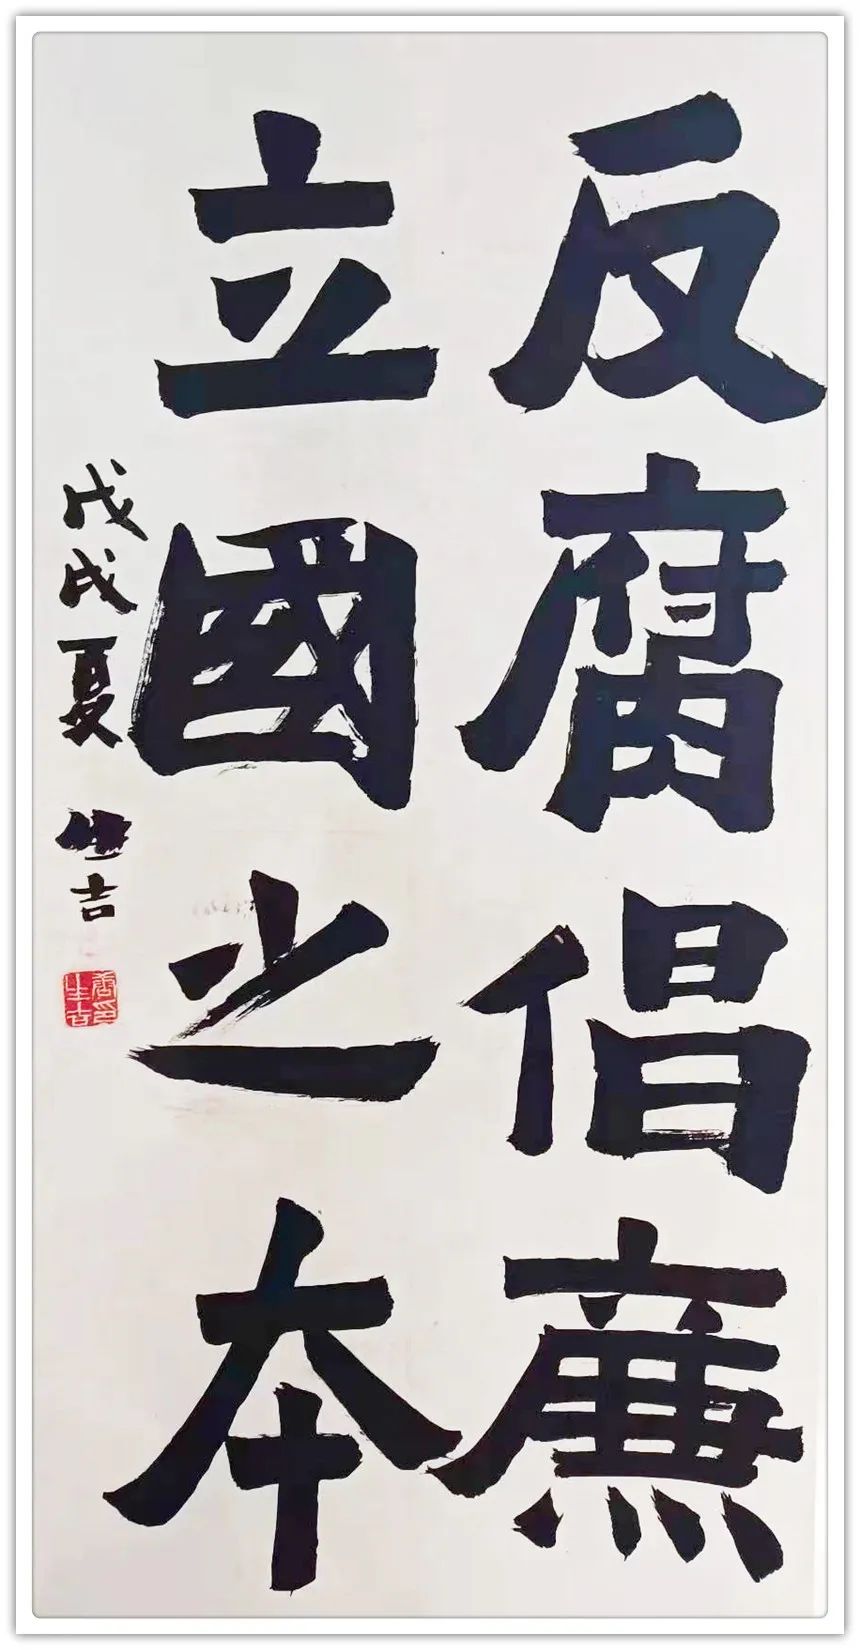 反腐倡廉
立國之本
戊戌夏 生吉